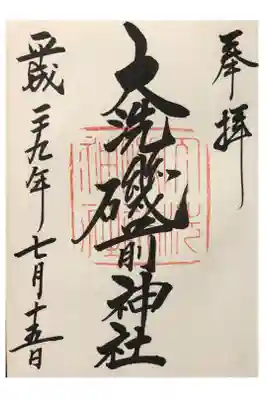 奉拝
大洗磯前神社
平成二十九年七月十五日